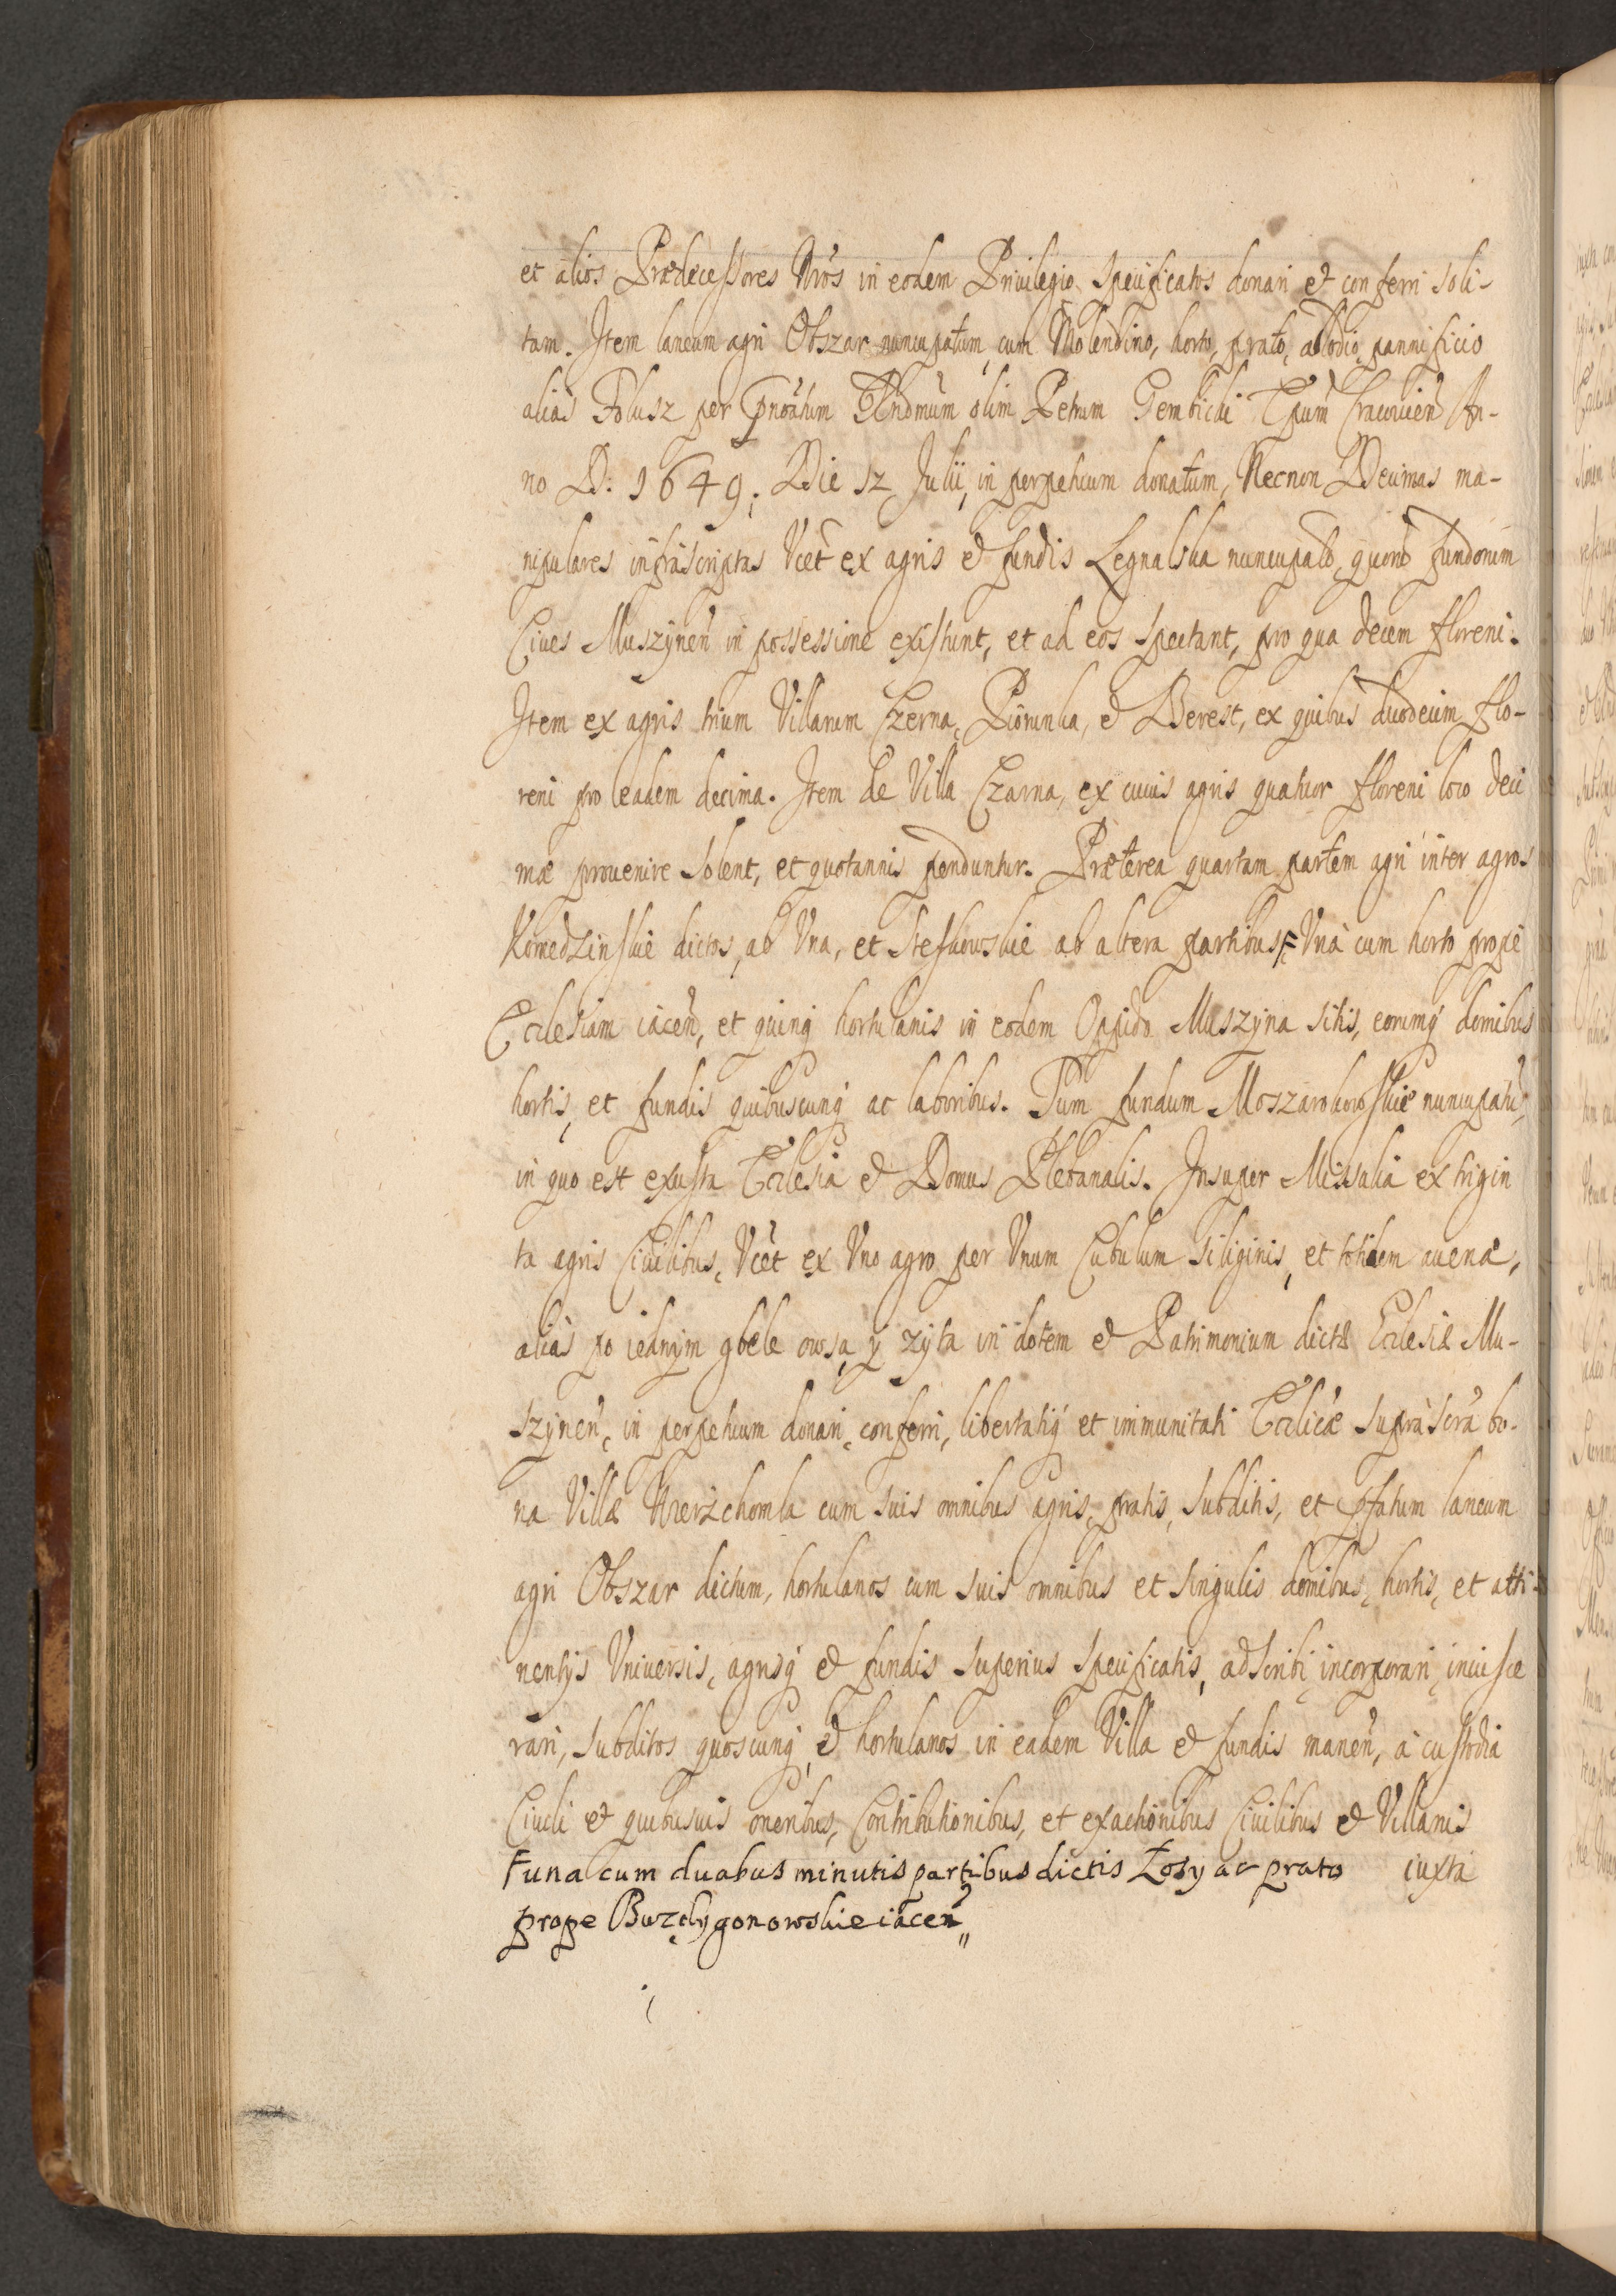 et alios Prædecessores Nros in eodem Priuilegio specificatos donari et conferri soli-
tam. Item laneum agri Obszar nuncupatum, cum Molendino, horto, prato, allodio, pannificio
alias Folusz per Rndmum olim Petrum Gembicki Epum Cracovien An-
no D: 1649. Die 12 Julii, in perpetuum donatum, Necnon Decimas ma-
nipulares infrascriptas Vcet ex agris et fundis Legnalska nuncupat, quor fundorum
Ciues Muszynen in possessione existunt, et ad eos spectant, pro qua decem floreni.
Item ex agris trium Villarum Czerna, Piorunka, et Berest, ex quibus duodecim flo-
reni pro eadem decima. Item de Villa Czarna, ex cuius agris quatuor floreni loco deci
mæ prouenire solent, et quotannis penduntur. Præterea quartam partem agri inter agros
Komedzinskie dictos, ab Vna, et Steskowskie ab altera partibus, F Vnà cum horto propè
Ecclesiam iacen, et quinq hortulanis in eodem Oppido Muszyna sitis, eorumq domibus
hortis, et fundis quibuscunq ac laboribus. Tum fundum nuncupatu,
in quo est exusta Ecclesia et Domus Plebanalis. Insuper Missalia ex trigin
ta agris Ciuilibus, Vcet ex Vno agro per Vnum Cubulum siliginis, et totidem auenæ,
alias po iednym gbele owsa, y zyta in dotem et Patrimonium dictæ Ecclesiæ Mu-
szynen, in perpetuum donari, conferri, libertatiq et immunitati Ecclicæ suprascra bo-
na Villæ Wierzchomla cum suis omnibus agris, pratis, subditis, et pfatum laneum
agri Obszar dictum, hortulanos cum suis omnibus et singulis domibus, hortis, et atti-
nentys Vniuersis, agrisq et fundis superius specificatis, adscribi, incorporari, inuisce
rari, subditos quoscunq, et hortulanos in eadem Villa et fundis manen, à custodia
Ciuili et quibusuis oneribus, Contributionibus, et exactionibus Ciuilibus et Villanis
iuxta
F una cum duabus minutis partibus dictis Łosy ac prato
prope iacen